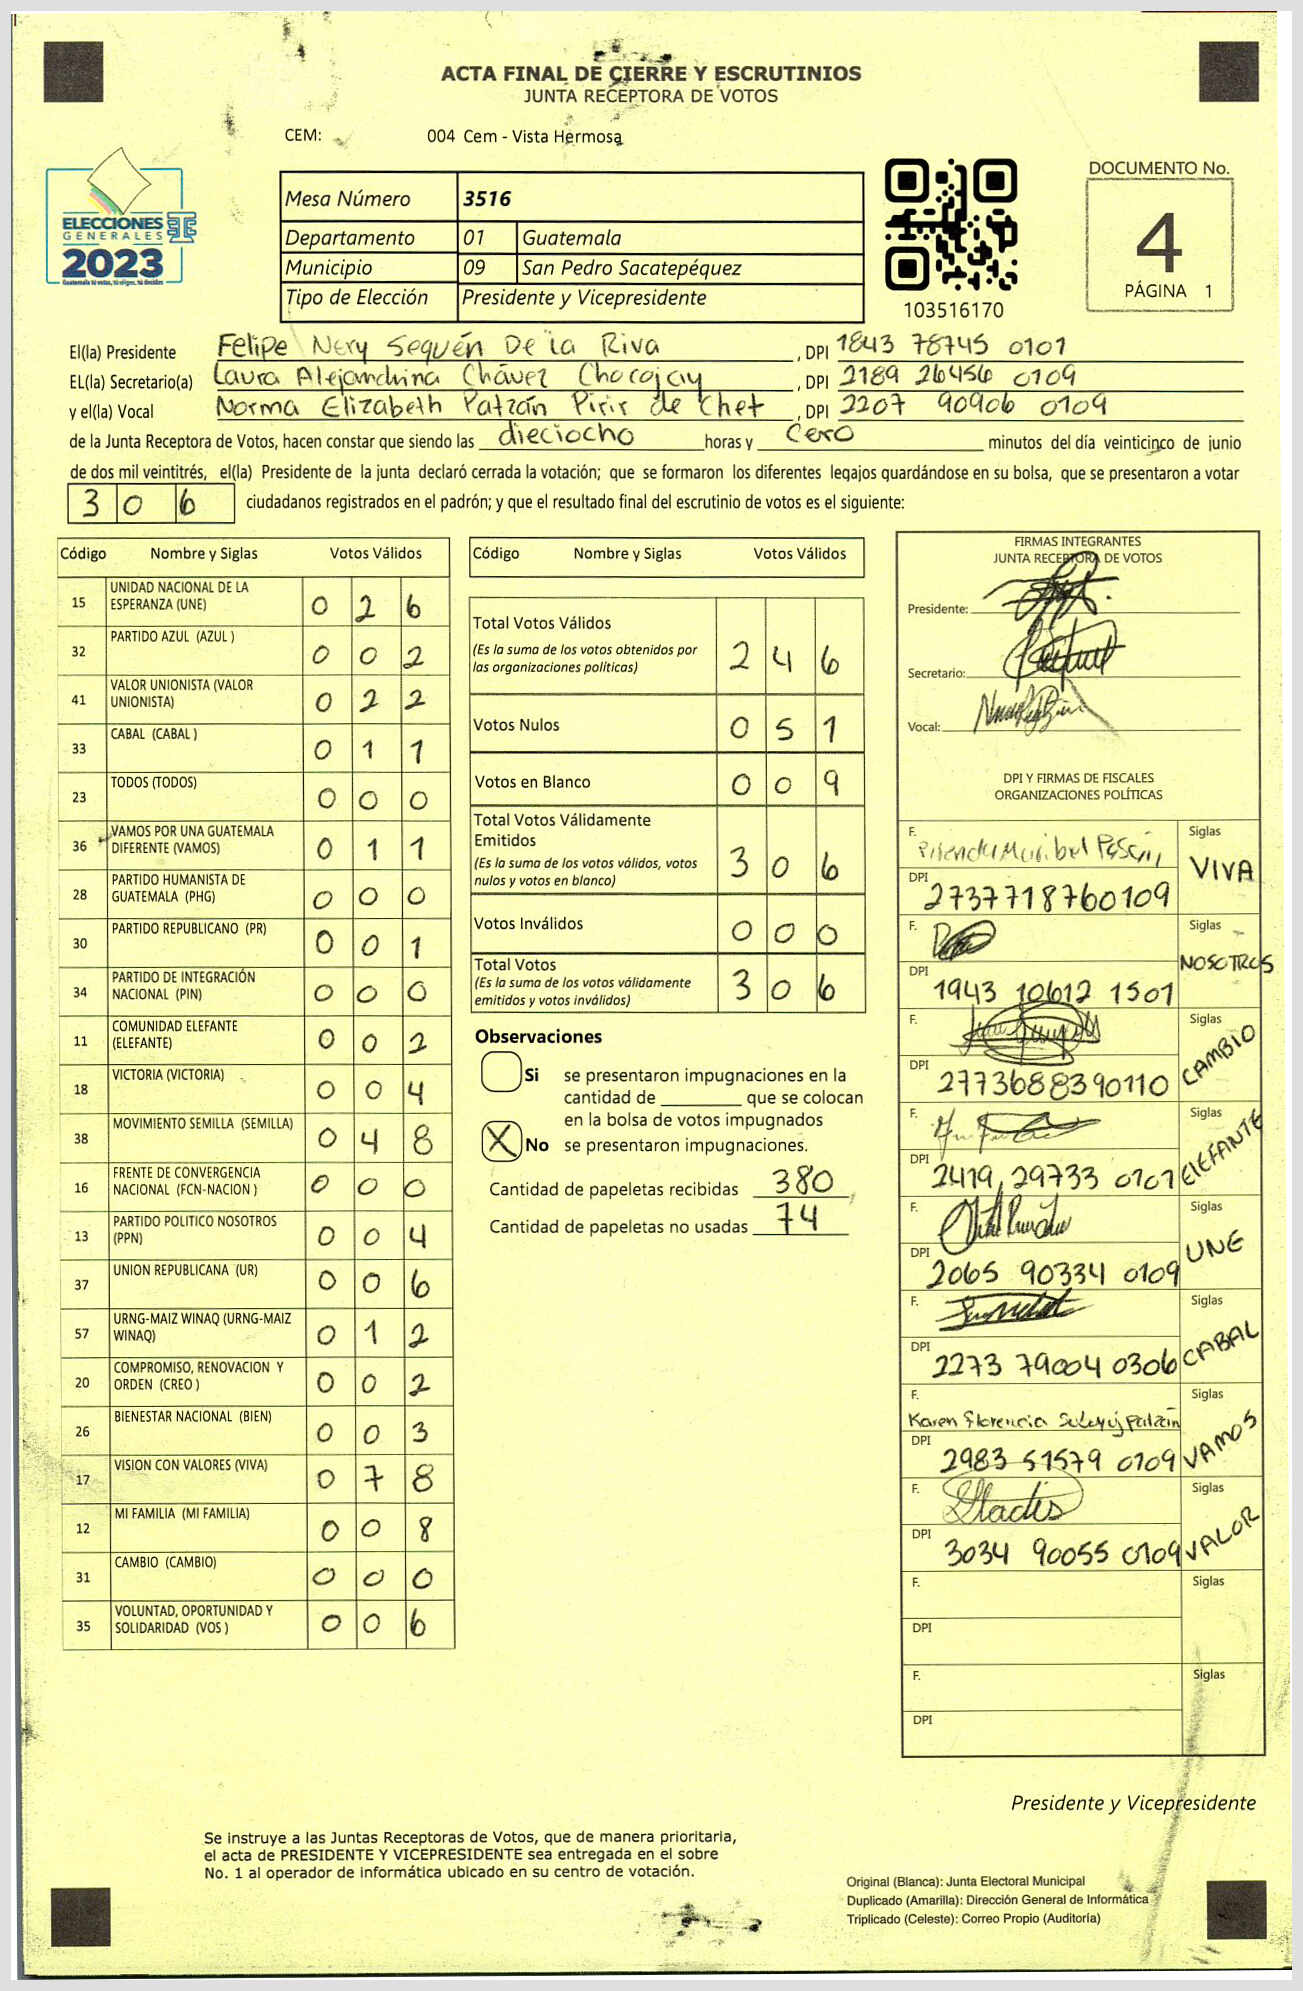 ACTA FINAL DE CIERRE Y ESCRUTINIOS
JUNTA RECEPTORA DE VOTOS
CEM: 004 Cem - Vista Hermosa
ELECCIONES
GENERALES
2023
Mesa Número 3516
Departamento 01 Guatemala
Municipio 09 San Pedro Sacatepéquez
Tipo de Elección Presidente y Vicepresidente
103516170
DOCUMENTO No.
4
PÁGINA 1
El(la) Presidente Felipe Nery Sequén De la Riva, DPI 1843 78745 0101
EL(la) Secretario(a) Laura Alejandrina Chávez Chocojay, DPI 2189 26456 0109
y el(la) Vocal Norma Elizabeth Patzán Pirir de Chet, DPI 2207 90906 0109
de la Junta Receptora de Votos, hacen constar que siendo las dieciocho horas y cero minutos del día veinticinco de junio
de dos mil veintitrés, el(la) Presidente de la junta declaró cerrada la votación; que se formaron los diferentes legajos guardándose en su bolsa, que se presentaron a votar
306 ciudadanos registrados en el padrón; y que el resultado final del escrutinio de votos es el siguiente:
Código Nombre y Siglas Votos Válidos
15 UNIDAD NACIONAL DE LA ESPERANZA (UNE) 0 2 6
32 PARTIDO AZUL (AZUL ) 0 0 2
41 VALOR UNIONISTA (VALOR UNIONISTA) 0 2 2
33 CABAL (CABAL ) 0 1 1
23 TODOS (TODOS) 0 0 0
36 VAMOS POR UNA GUATEMALA DIFERENTE (VAMOS) 0 1 1
28 PARTIDO HUMANISTA DE GUATEMALA (PHG) 0 0 0
30 PARTIDO REPUBLICANO (PR) 0 0 1
34 PARTIDO DE INTEGRACIÓN NACIONAL (PIN) 0 0 0
11 COMUNIDAD ELEFANTE (ELEFANTE) 0 0 2
18 VICTORIA (VICTORIA) 0 0 4
38 MOVIMIENTO SEMILLA (SEMILLA) 0 4 8
16 FRENTE DE CONVERGENCIA NACIONAL (FCN-NACION ) 0 0 0
13 PARTIDO POLITICO NOSOTROS (PPN) 0 0 4
37 UNION REPUBLICANA (UR) 0 0 6
57 URNG-MAIZ WINAQ (URNG-MAIZ WINAQ) 0 1 2
20 COMPROMISO, RENOVACION Y ORDEN (CREO ) 0 0 2
26 BIENESTAR NACIONAL (BIEN) 0 0 3
17 VISION CON VALORES (VIVA) 0 7 8
12 MI FAMILIA (MI FAMILIA) 0 0 8
31 CAMBIO (CAMBIO) 0 0 0
35 VOLUNTAD, OPORTUNIDAD Y SOLIDARIDAD (VOS ) 0 0 6
Código Nombre y Siglas Votos Válidos
Total Votos Válidos 2 4 6
(Es la suma de los votos obtenidos por
las organizaciones políticas)
Votos Nulos 0 5 1
Votos en Blanco 0 0 9
Total Votos Válidamente
Emitidos 3 0 6
(Es la suma de los votos válidos, votos
nulos y votos en blanco)
Votos Inválidos 0 0 0
Total Votos 3 0 6
(Es la suma de los votos válidamente
emitidos y votos inválidos)
Observaciones
Si se presentaron impugnaciones en la
cantidad de ________ que se colocan
en la bolsa de votos impugnados
X No se presentaron impugnaciones.
Cantidad de papeletas recibidas 380
Cantidad de papeletas no usadas 74
FIRMAS INTEGRANTES
JUNTA RECEPTORA DE VOTOS
Presidente:
Secretario:
Vocal:
DPI Y FIRMAS DE FISCALES
ORGANIZACIONES POLÍTICAS
F. Siglas
DPI 2737718760109 VIVA
F. Siglas
DPI 1943 10612 1501 NOSOTROS
F. Siglas
DPI 2773688390110 CAMBIO
F. Siglas
DPI 2419, 29733 0101 ElEFANTE
F. Siglas
DPI 2065 90334 0109 UNE
F. Siglas
DPI 2273 79004 0306 CABAL
F. Karen Florencia Patzán Siglas
DPI 2983 51579 0109 VAMOS
F. Gladis Siglas
DPI 3034 90055 0109 VALOR
F. Siglas
DPI
F. Siglas
DPI
Presidente y Vicepresidente
Se instruye a las Juntas Receptoras de Votos, que de manera prioritaria,
el acta de PRESIDENTE Y VICEPRESIDENTE sea entregada en el sobre
No. 1 al operador de informática ubicado en su centro de votación.
Original (Blanca): Junta Electoral Municipal
Duplicado (Amarilla): Dirección General de Informática
Triplicado (Celeste): Correo Propio (Auditoría)